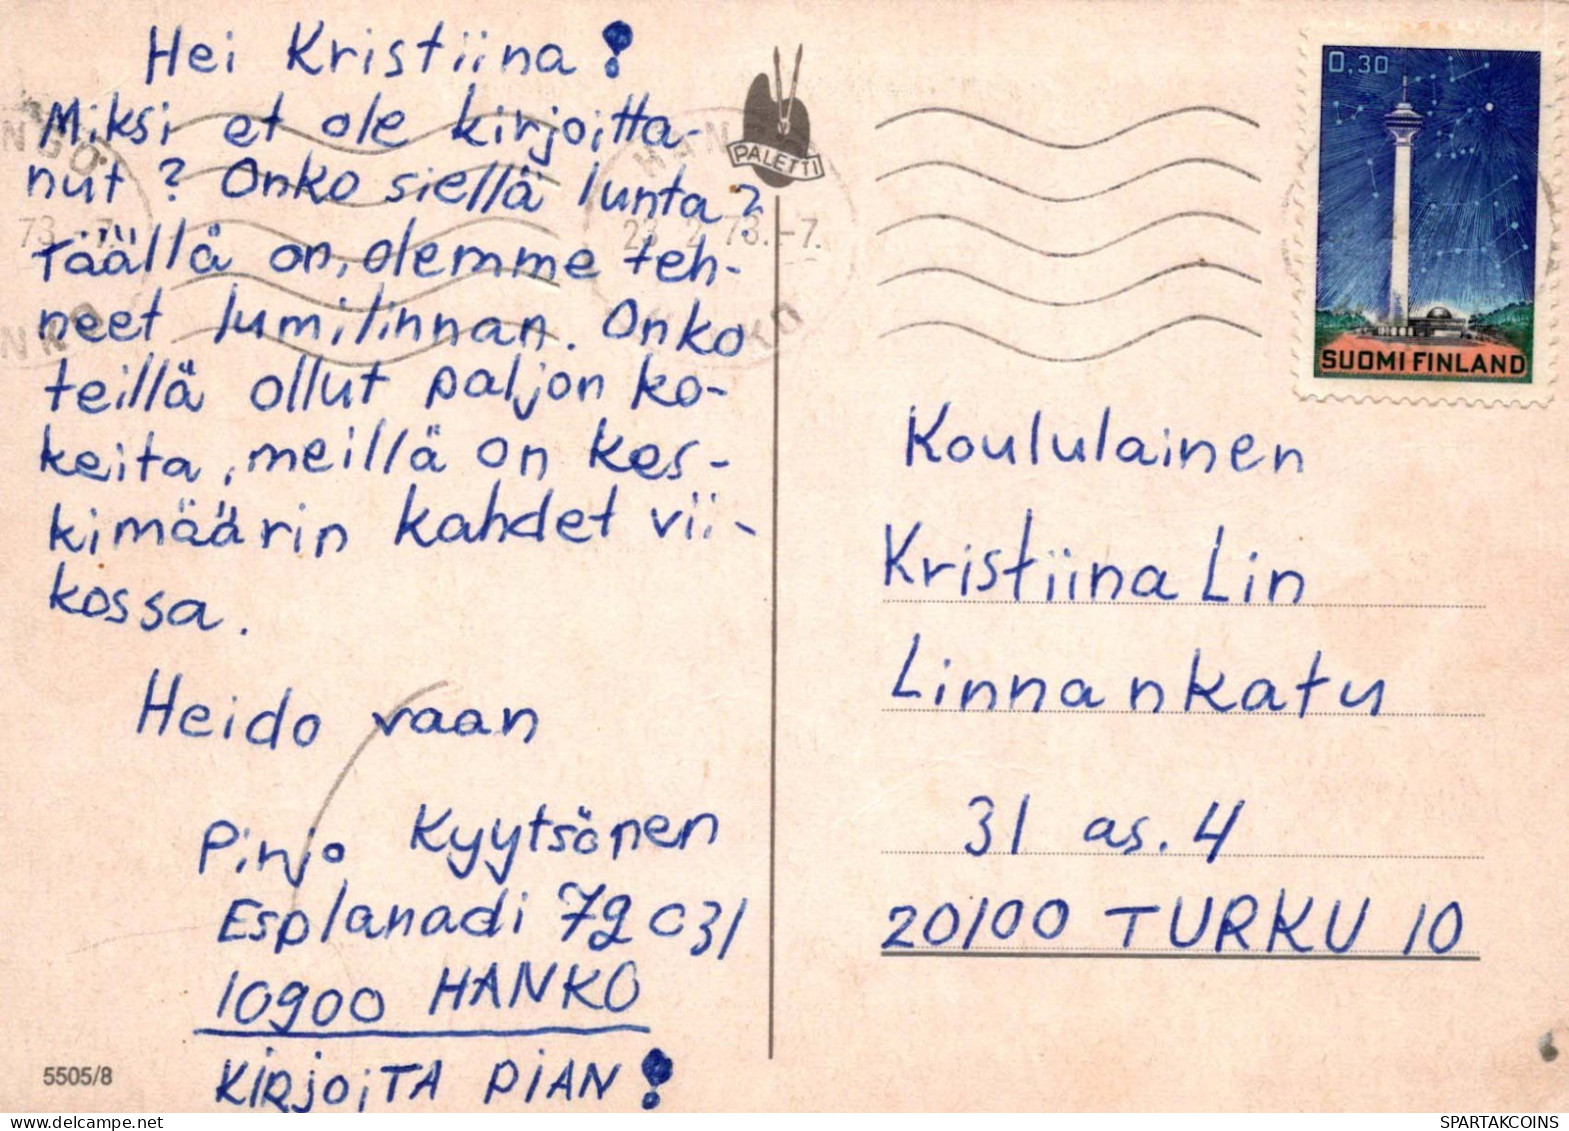 Hei Kristiina!
Miksi et ole kirjoitta-
nut? Onko siellä lunta?
Täällä on, olemme teh-
neet lumilinnan. Onko
teillä ollut paljon ko-
keita, meillä on kes-
kimäärin kahdet vii-
kossa.
Heido vaan
Pinjo Kyytsönen
Esplanadi 79 C31
10900 HANKO
KIRJOITA PIAN!
5505/8
PALETTI
23.2.73.-7.
HANKO
0,30
SUOMI FINLAND
Koululainen
Kristiina Lin
Linnankatu
31 as. 4
20100 TURKU 10
SPARTAKCOINS
www.delcampe.net